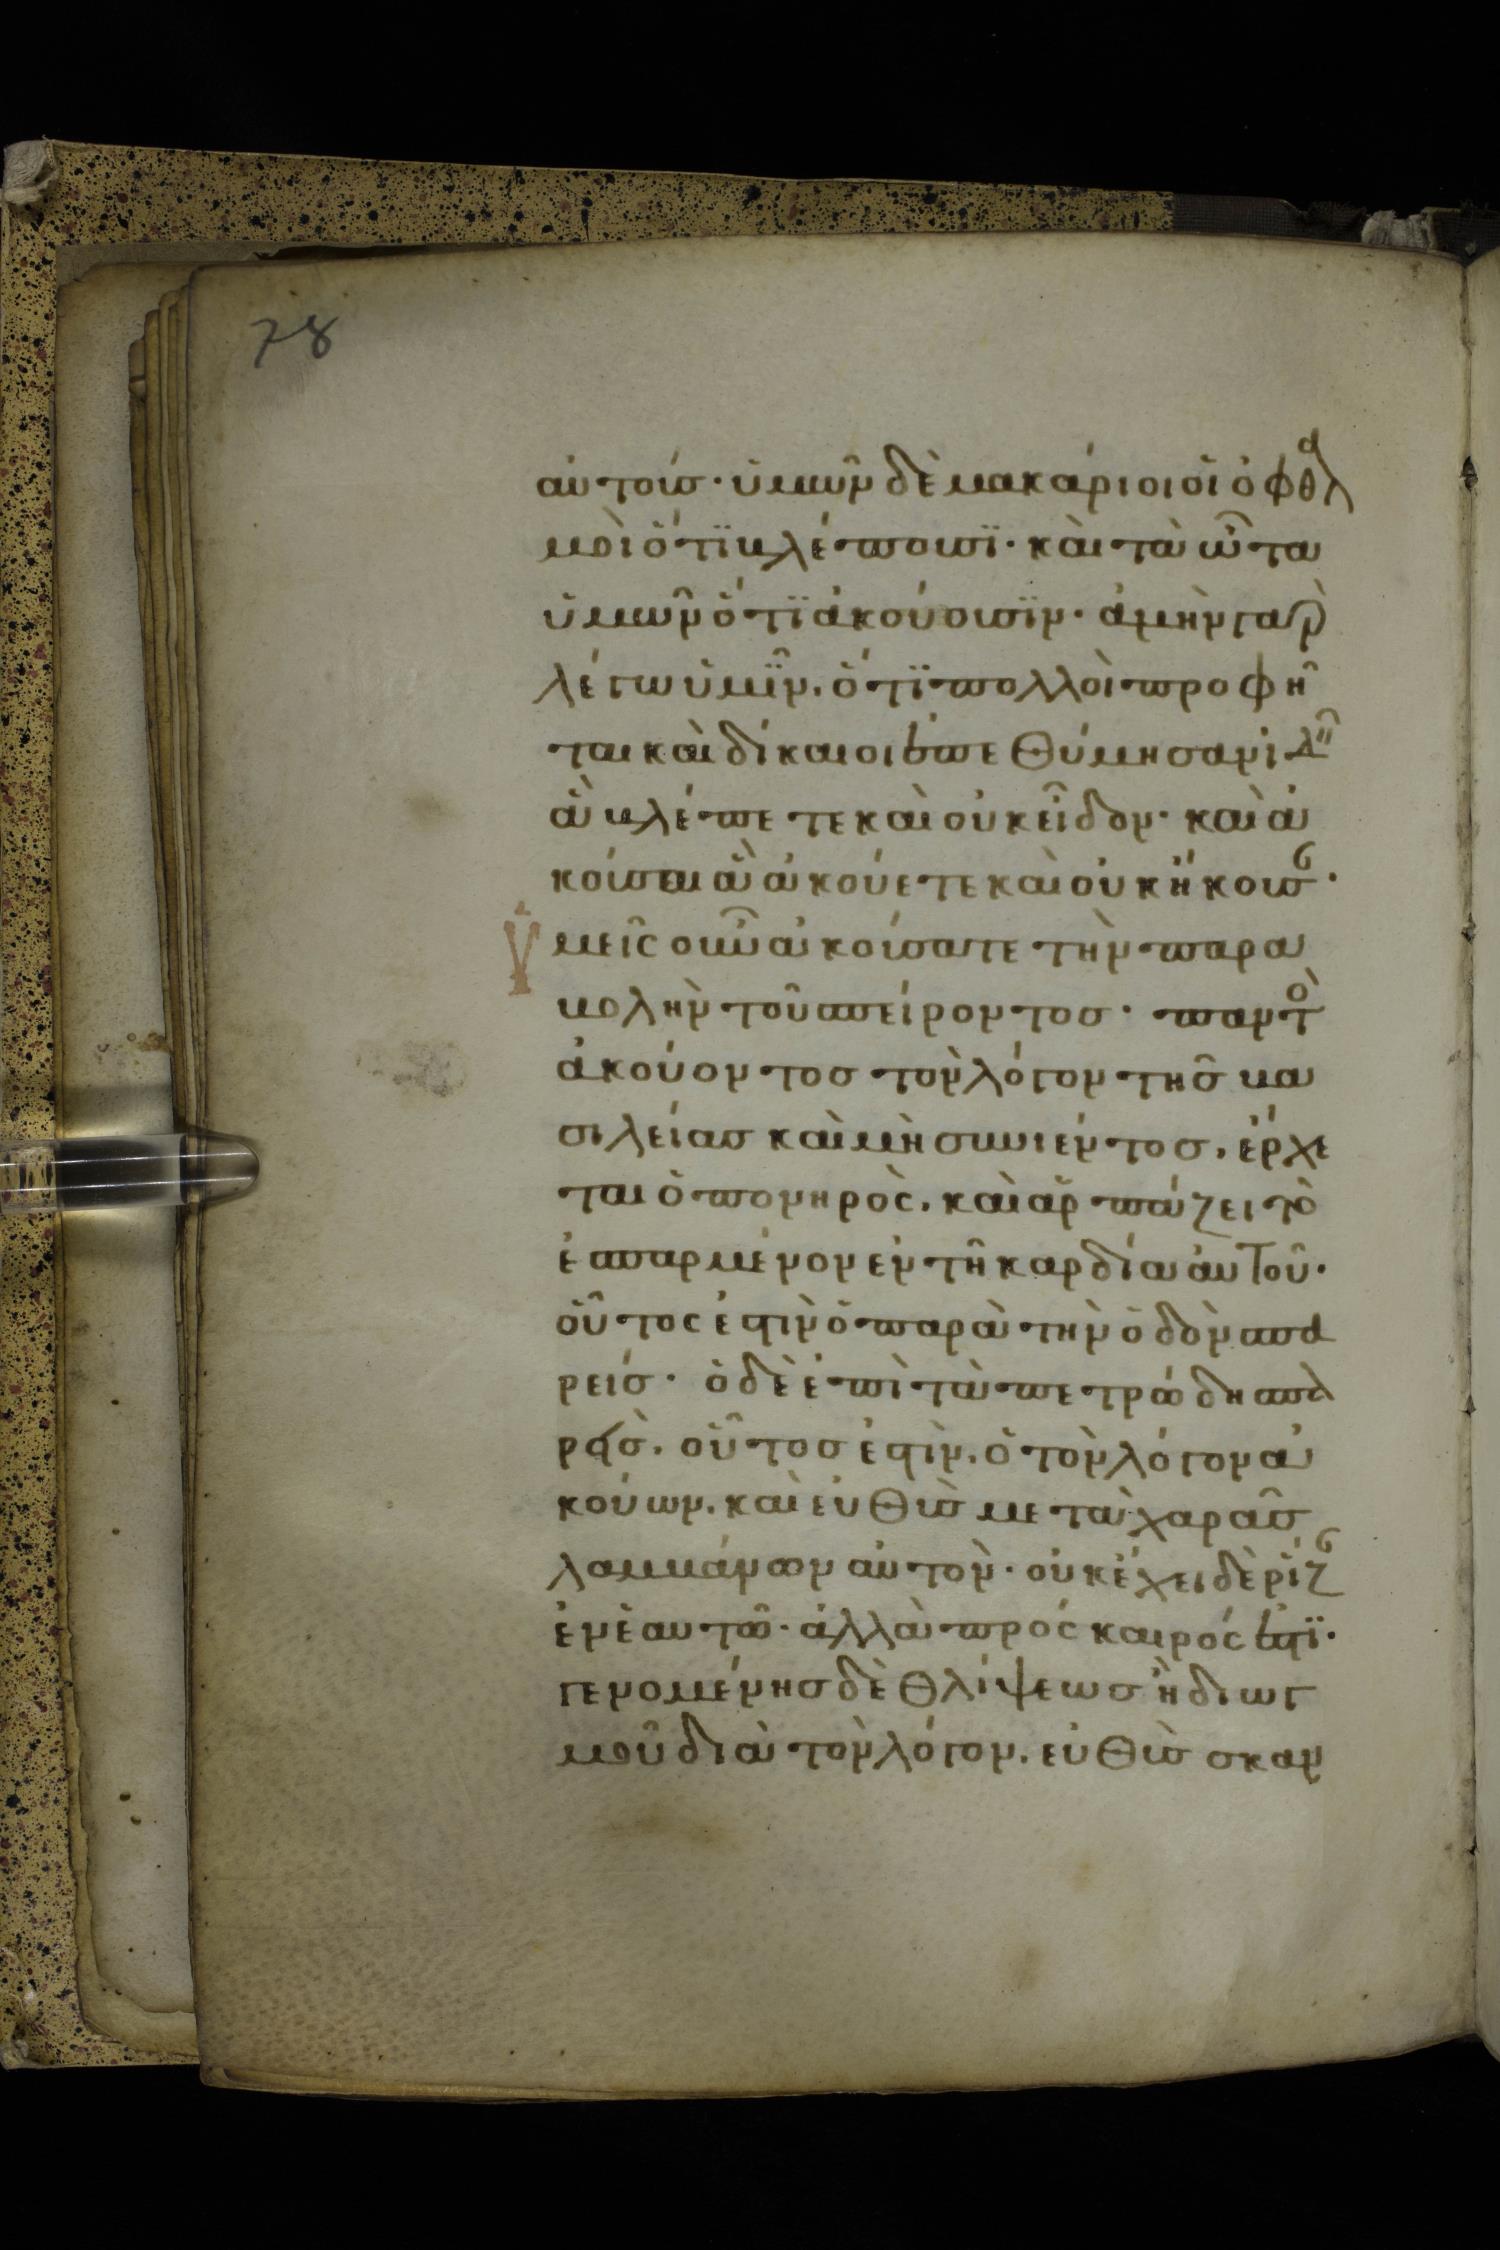 78
αὐτοίσ· ὑμῶν δὲ μακάριοι οἱ ὀφθαλ
μοὶ ὅτϊ βλέπουσϊ· καὶ τὰ ὦτα
ὑμῶν ὅτϊ ἀκούουσϊν· ἀμὴν γαρ
λέγω ὑμῖν, ὅτϊ πολλοὶ προφῆ
ται καὶ δίκαιοι ἐπεθύμησαν ἰδεῖν
ἃ βλέπετε καὶ οὐκ εἶδον· καὶ ἀ
κούσαι ἃ ἀκούετε καὶ οὐκ ἤκουσαν·
Ὑμεῖς οὖν ἀκούσατε τὴν παρα
βολὴν τοῦ σπείροντοσ· παντὸ
ἀκούοντοσ τὸν λόγον τῆσ βα
σιλείασ καὶ μὴ συνιέντοσ, ἔρχε
ται ὁ πονηρὸς, καὶ ἁρπάζει τὸ
ἐσπαρμένον ἐν τῆ καρδία αὐτοῦ·
οὗτος ἐστιν ὁ παρὰ τὴν ὁδὸν σπα
ρείσ· ὁ δὲ ἐπὶ τὰ πετρώδη σπα
ρεὶσ, οὗτοσ ἐστὶν, ὁ τὸν λόγον ἀ
κούων, καὶ εὐθὺσ μετὰ χαρᾶσ
λαμβάνων αὐτὸν· οὐκ ἔχει δὲ ρίζαν
ἐν ἑαυτῶ· ἀλλὰ πρός καιρός ἐστϊ·
γενομένησ δὲ θλίψεωσ ἢ διωγ
μοῦ διὰ τὸν λόγον, εὐθὺσ σκαν